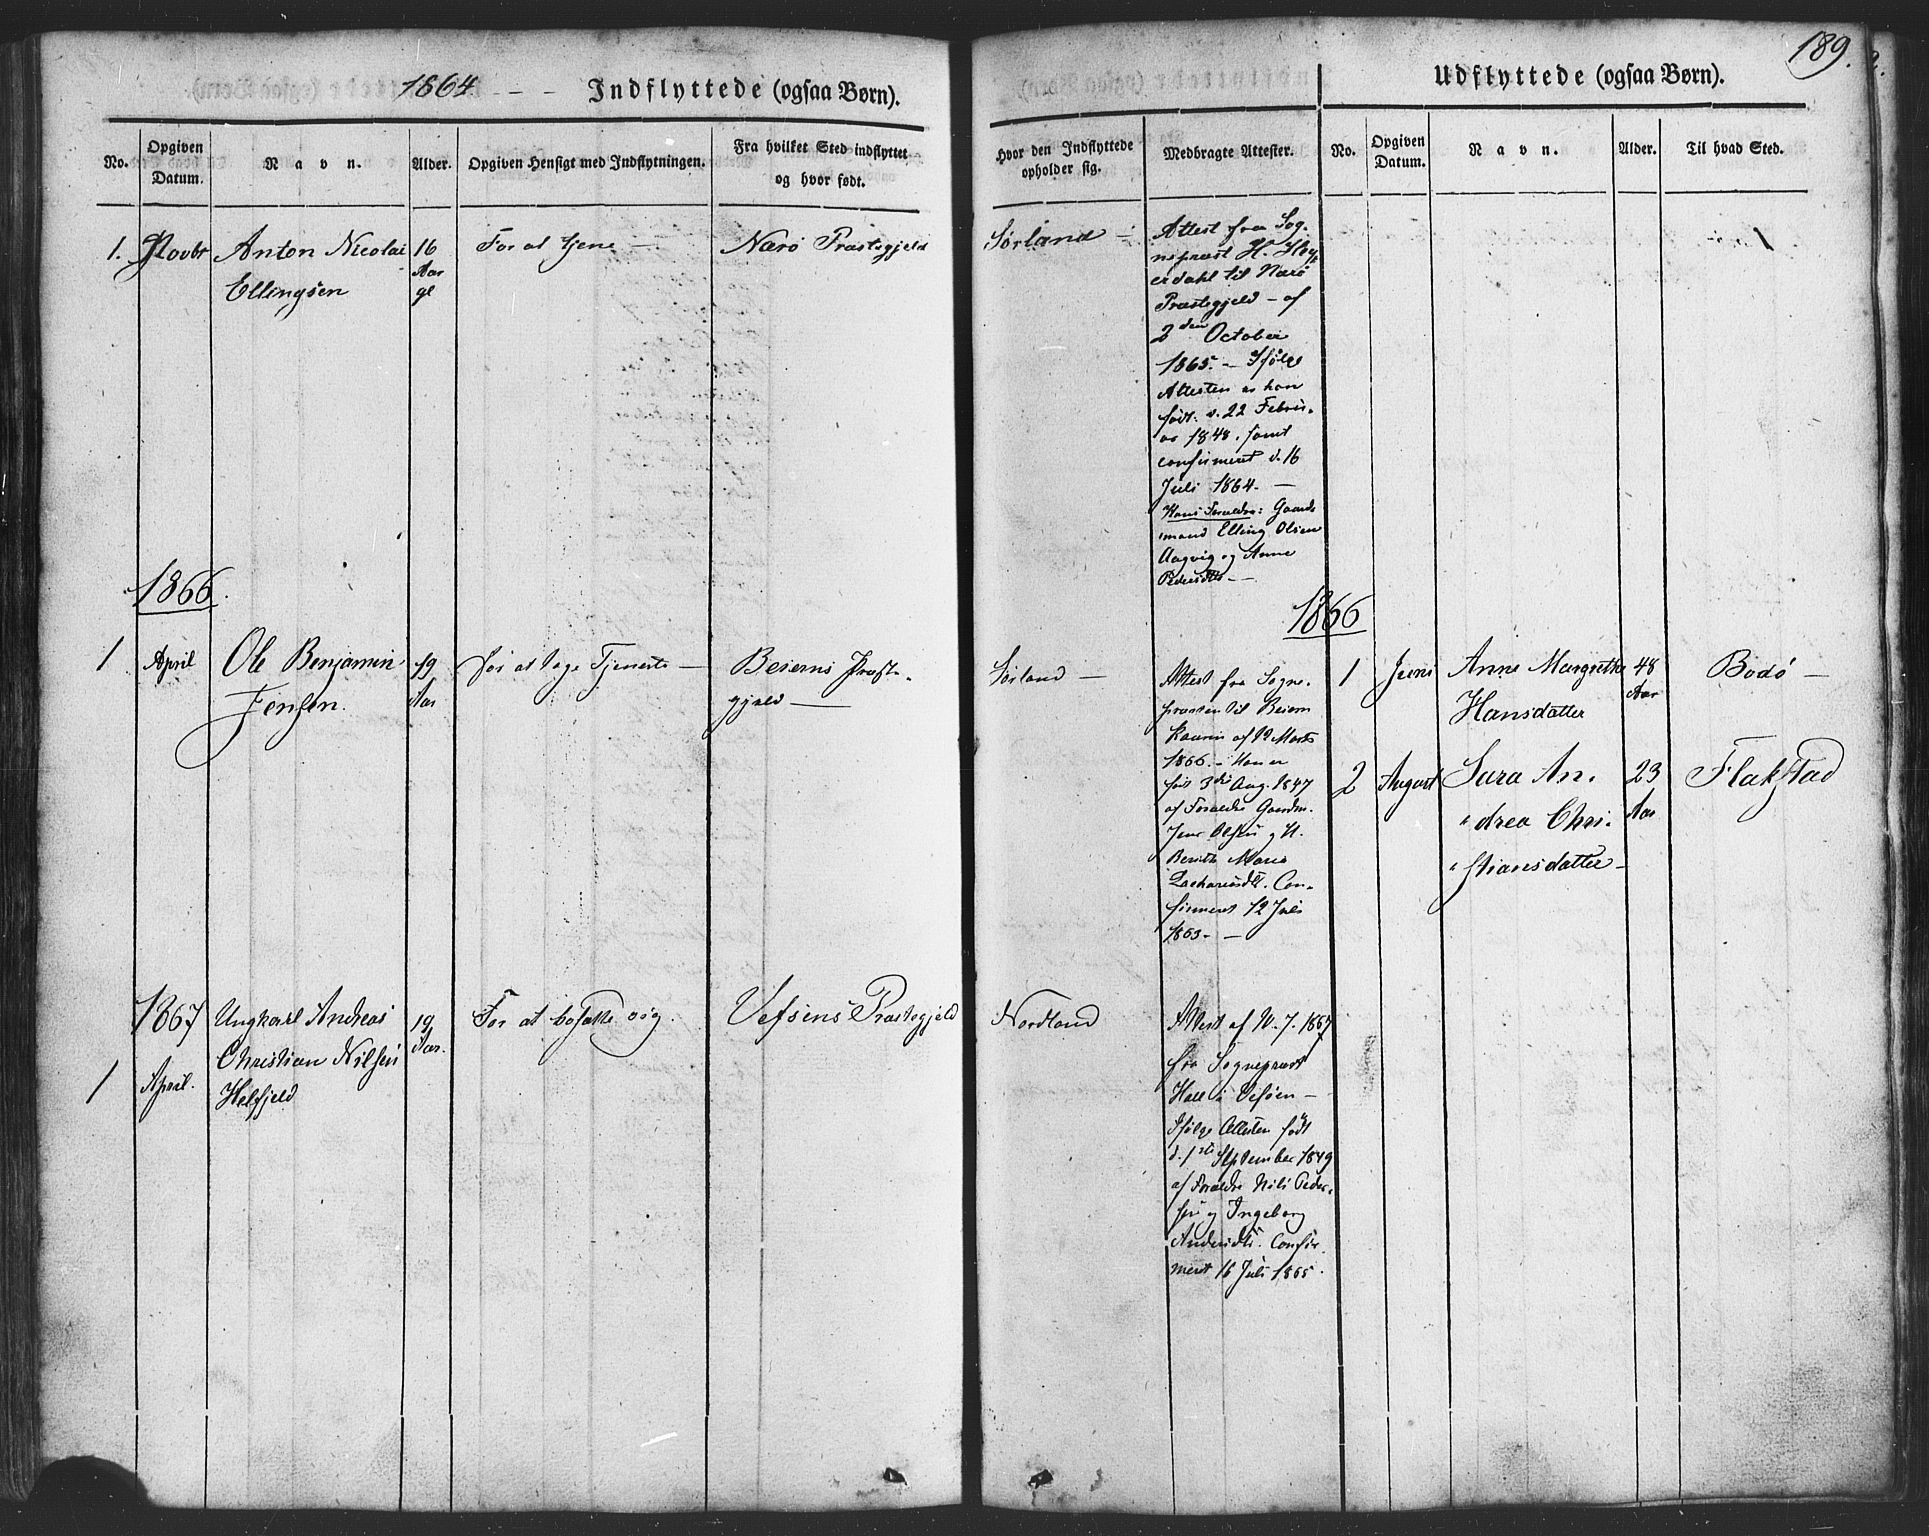 1864 - - Indflyttede (ogsaa Børn).
No.
Opgiven
Datum.
Navn.
Alder.
Opgiven Hensigt med Indflytningen.
Fra hvilket Sted indflyttet
og hvor født.
1. Novbr
Anton Nicolai
Ellingsen
16
Aar
gl
For at tjene -
Nærø Præstegjeld
1866.
1 April
Ole Benjamin
Jensen.
19
Aar
for at tage Tjeneste -
Beierns Præste-
gjeld -
1867
1 April.
Ungkarl Andreas
Christian Nilsen
Helfjeld
19
Aar.
For at bosætte sig.
Vefsens Præstegjeld
189.
Udflyttede (ogsaa Børn).
Hvor den Indflyttede
opholder sig.
Medbragte Attester.
No.
Opgiven
Datum.
Navn.
Alder.
Til hvad Sted.
Sørland -
Attest fra Sog-
nepræst H.
til Nærø
Præstegjeld - af
2den October
1865. - Ifølge
Attesten er han
født. d. 22 Febru-
ar 1848. samt
confirmeret d. 16
Juli 1864. -
Hans Forældre: Gaards
mand Elling Olsen
Aagvig og Anne
Pedersdtr -
Sørland -
Attest fra Sogne-
præsten til Beiern
Kaurin af 12 Marts
1866. - Han er
født 3die Aug. 1847
af Forældre Gaardm.
Jens Olsen og H.
Berith Maria
Zachariasdtr. Con-
firmeret 12 Juli
1863. -
Nordland
Attest af 10. 7. 1867
fra Sognepræst
Hall i Vefsen -
Ifølge Attesten født
d. 1ste September 1849
af Forældre Nils Peder-
sen og Ingeborg
Andersdtr. Confir-
meret 16 Juli 1865.
1866
1 Juni
Anne Margrethe
Hansdatter
48
Aar
Bodø -
2 August
Sara An-
drea Chri-
stiansdatter -
23
Aar
Flakstad